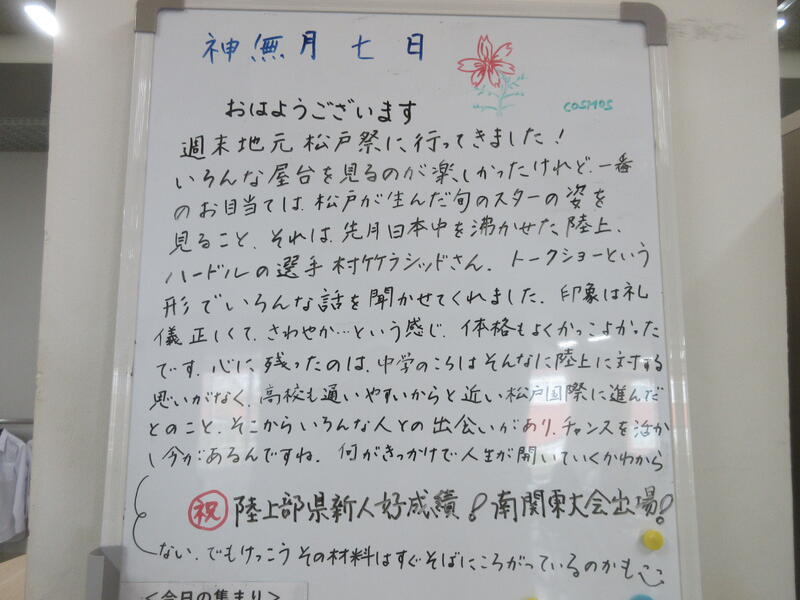 神無月 七 日
COSMOS
おはようございます
週末地元 松戸祭に、行ってきました！
いろんな屋台を見るのが楽しかったけれど、一番
のお目当ては、松戸が生んだ旬のスターの姿を
見ること、それは、先月日本中を沸かせた陸上、
ハードルの選手 村竹ラシッドさん、トークショーという
形でいろんな話を聞かせてくれました。印象は礼
儀正しくて、さわやか…という感じ、体格もよくかっこよかった
です。心に残ったのは、中学のころはそんなに陸上に対する
思いがなく、高校も通いやすいからと近い松戸国際に進んだ
とのこと、そこからいろんな人との出会いがあり、チャンスを活か
し今があるんですね。何がきっかけで人生が開いていくかわから
祝 陸上部県新人好成績！南関東大会出場！
ない、でもけっこうその材料はすぐそばにころがっているのかも
＜今日の集まり＞